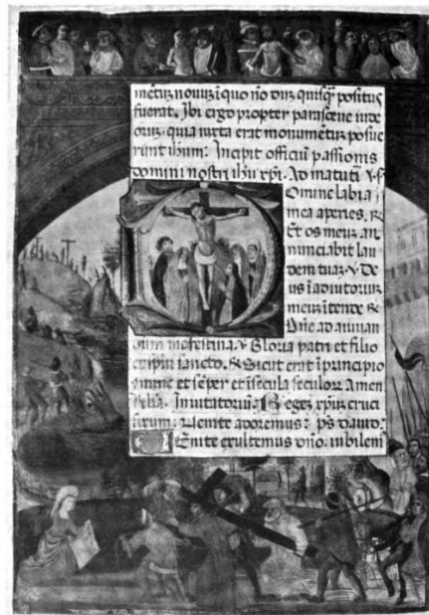 mētuz nouuz ī quo nō duz quisq̄ positus
fuerat. Ibi ergo propter parasceue iude
oruz. quia iuxta erat monumētuz posue
runt ihum: Incipit officiū passionis
domini nostri ihu xpi. Ad matuti
Domine labia
mea aperies. R
Et os meuz an
nunciabit lau
dem tuaz. V De
us ī adiutoriuz
meuz ītende
Dñe ad adiuuan
dum me festina. V Gloria patri et filio
et spiritui sancto. R Sicut erat ī principio
et nunc et sēper et ī secula seculoruz Amen
Inuitatoriuz Regez xpuz cruci
fixum: Uenite adoremus: ps dauid.
Uenite exultemus dño. iubilem